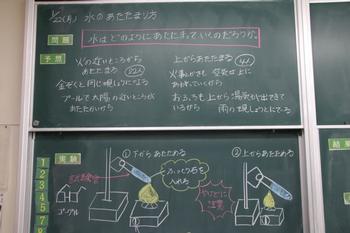 1/22(月) 水のあたたまり方
問題
水はどのようにあたたまっていくのだろうか。
予想
火の近いところから
あたたまる 22人
金ぞくと同じ順じょになる
プールで太陽の近いところが
あたたかいから
上からあたたまる 4人
火事のときも 空気は上に
あがっていくから
おふろも上から湯気が出てきて
いるから
実験
1
2
3
4
5
7
8
ゴーグル
試験管
①下からあたためる
ふっとう石を
入れる
やけどに
注意
②上からあたためる
結果